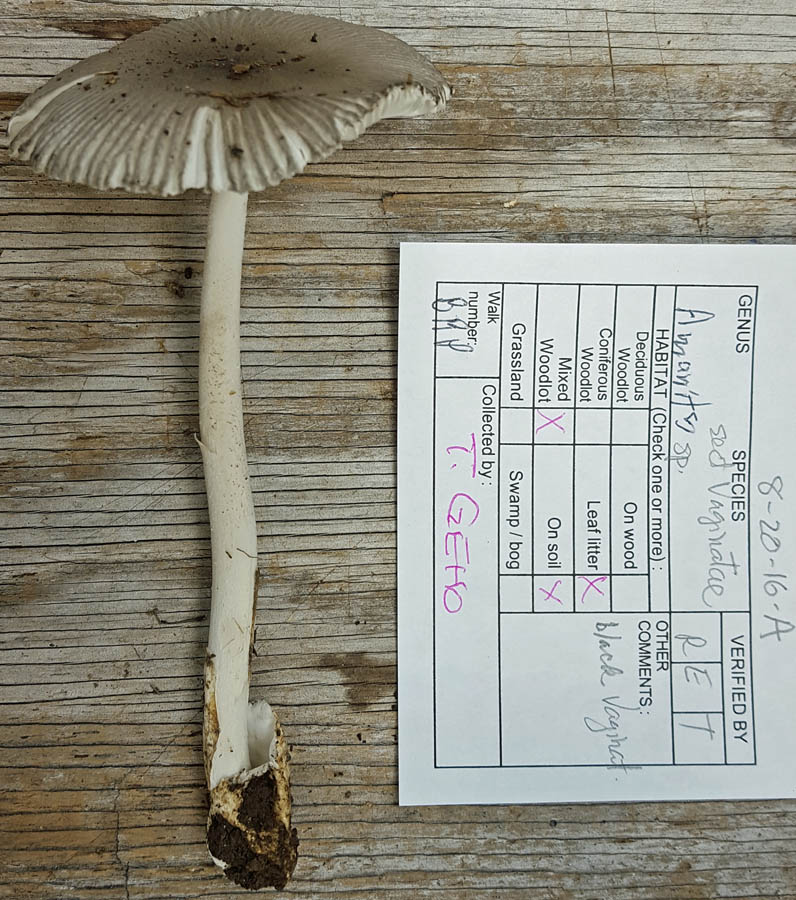 8-20-16-A
GENUS SPECIES VERIFIED BY
sect Vaginatae
Amanita sp. R E T
HABITAT (Check one or more) :
OTHER COMMENTS :
Deciduous Woodlot On wood
black Vaginat.
Coniferous Woodlot Leaf litter X
Mixed Woodlot X On soil X
Grassland Swamp / bog
Walk number: Collected by :
T. GEHO